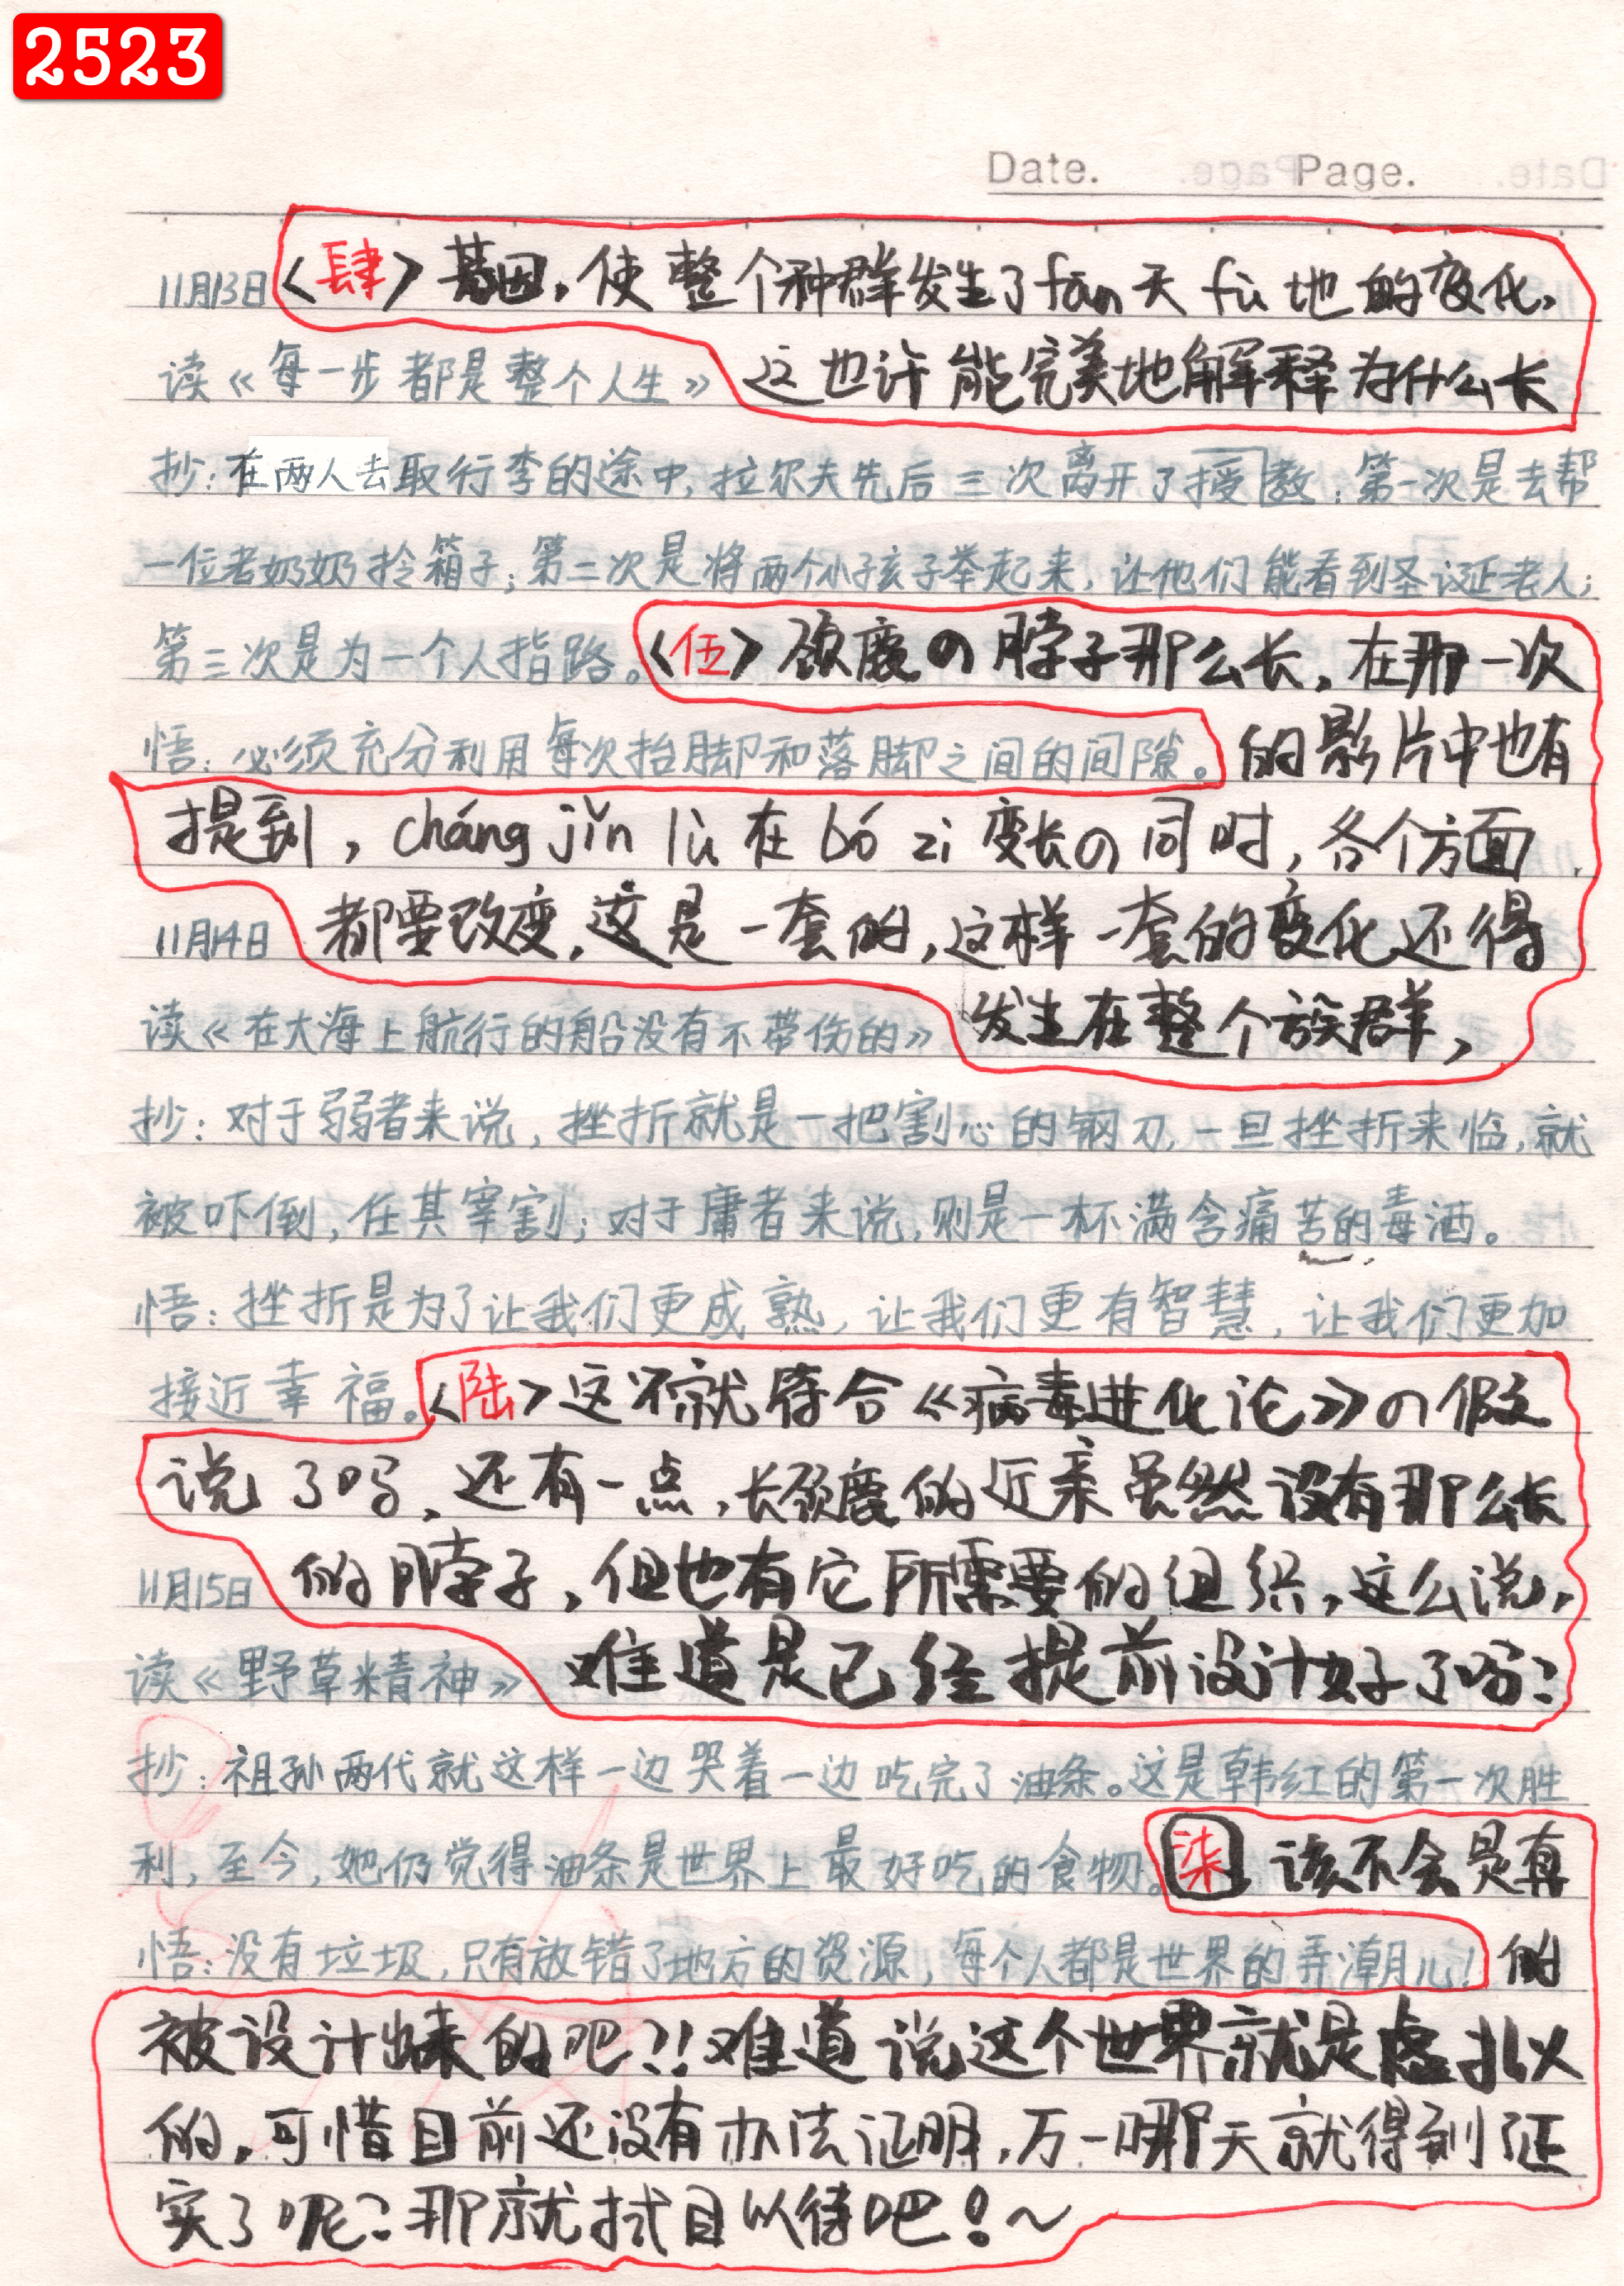 2523
Date. Page.
11月13日 〈肆〉基因，使整个种群发生了fān天fù地的变化，
读《每一步都是整个人生》 这也许能完美地解释为什么长
抄：在两人去取行李的途中，拉尔夫先后三次离开了授教：第一次是去帮
一位老奶奶拎箱子；第二次是将两个小孩子举起来，让他们能看到圣诞老人；
第三次是为一个人指路。〈伍〉颈鹿の脖子那么长，在那一次
悟：必须充分利用每次抬脚和落脚之间的间隙。 的影片中也有
提到，cháng jǐn lù 在 bó zi 变长の同时，各个方面
11月14日 都要改变，这是一套的，这样一套的变化还得
读《在大海上航行的船没有不带伤的》 发生在整个族群，
抄：对于弱者来说，挫折就是一把割心的钢刀，一旦挫折来临，就
被吓倒，任其宰割；对于庸者来说，则是一杯满含痛苦的毒酒。
悟：挫折是为了让我们更成熟，让我们更有智慧，让我们更加
接近幸福。〈陆〉这不就符合《病毒进化论》の假
说了吗，还有一点，长颈鹿的近亲虽然没有那么长
11月15日 的脖子，但也有它所需要的组织，这么说，
读《野草精神》 难道是已经提前设计好了吗？
抄：祖孙两代就这样一边哭着一边吃完了油条。这是韩红的第一次胜
利，至今，她仍觉得油条是世界上最好吃的食物。柒 该不会是真
悟：没有垃圾，只有放错了地方的资源，每个人都是世界的弄潮儿！ 的
被设计出来的吧？！难道说这个世界就是虚拟
的，可惜目前还没有办法证明，万一哪天就得到了证
实了呢？那就拭目以待吧！～